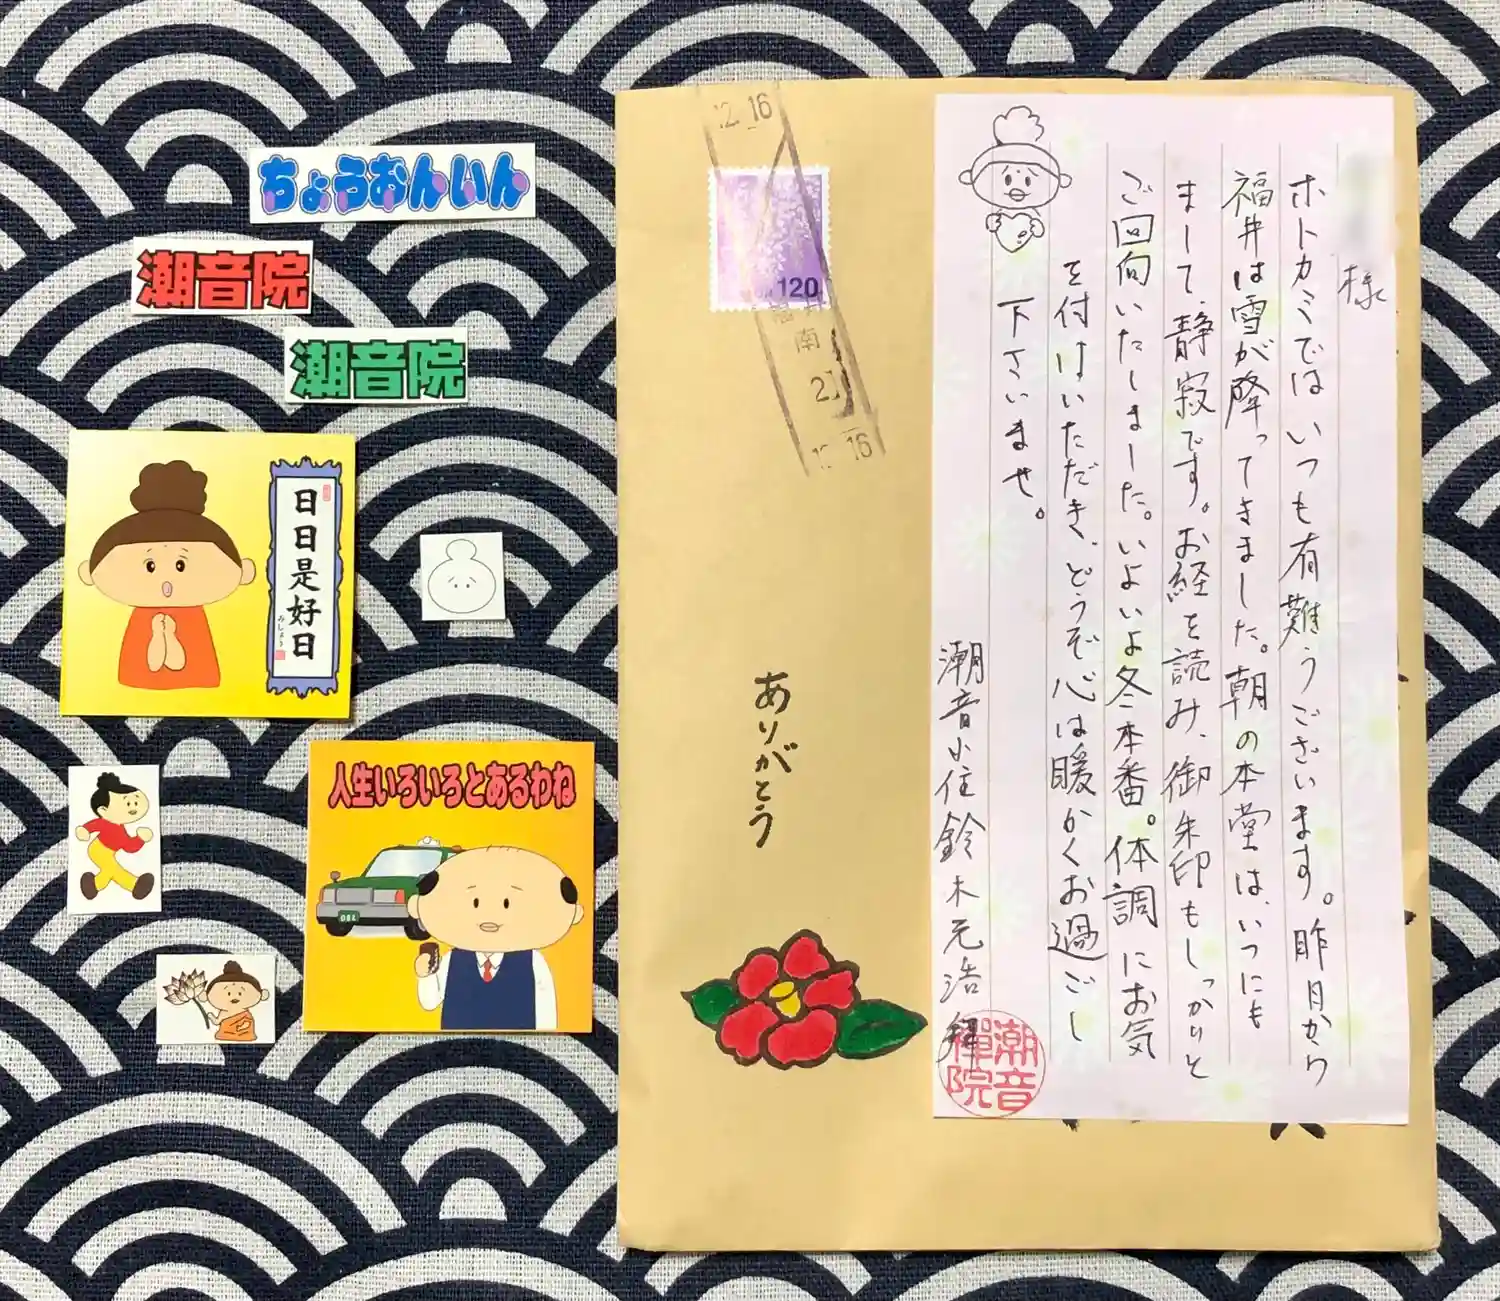 ちょうおんいん
潮音院
潮音院
日日是好日
みしょう
人生いろいろとあるわね
12.16
120
南
12.16
ありがとう
様
ホトカミではいつも有難うございます。昨日から
福井は雪が降ってきました。朝の本堂は、いつにも
まして静寂です。お経を読み、御朱印もしっかりと
ご回向いたしました。いよいよ冬本番。体調にお気
を付けいただき、どうぞ心は暖かくお過ごし
下さいませ。
潮音小住鈴木元浩 拝
潮音
禪院